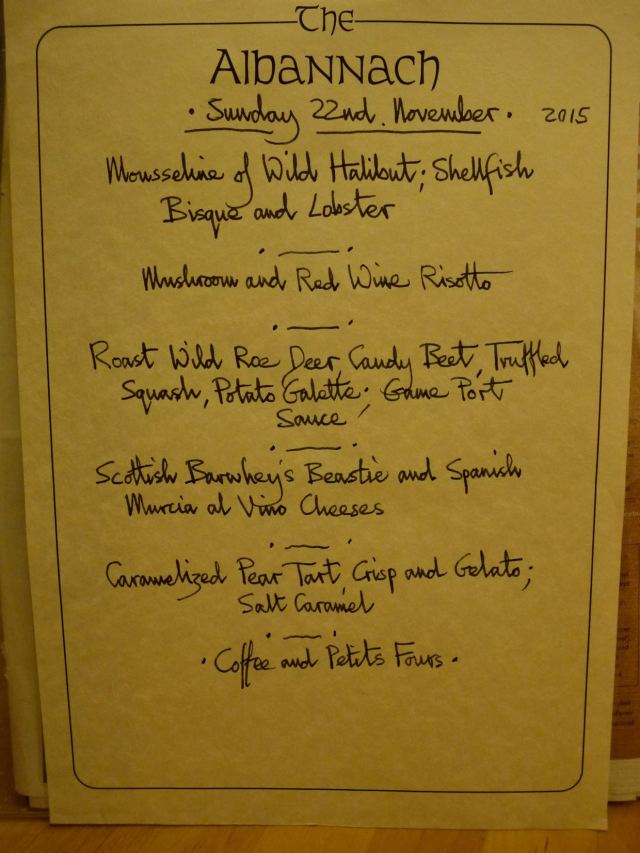 The
Albannach
· Sunday 22nd. November · 2015
Mousseline of Wild Halibut; Shellfish
Bisque and Lobster
Mushroom and Red Wine Risotto
Roast Wild Roe Deer, Candy Beet, Truffled
Squash, Potato Galette; Game Port
Sauce
Scottish Barwhey's Beastie and Spanish
Murcia al Vino Cheeses
Caramelized Pear Tart, Crisp and Gelato;
Salt Caramel
· Coffee and Petits Fours ·